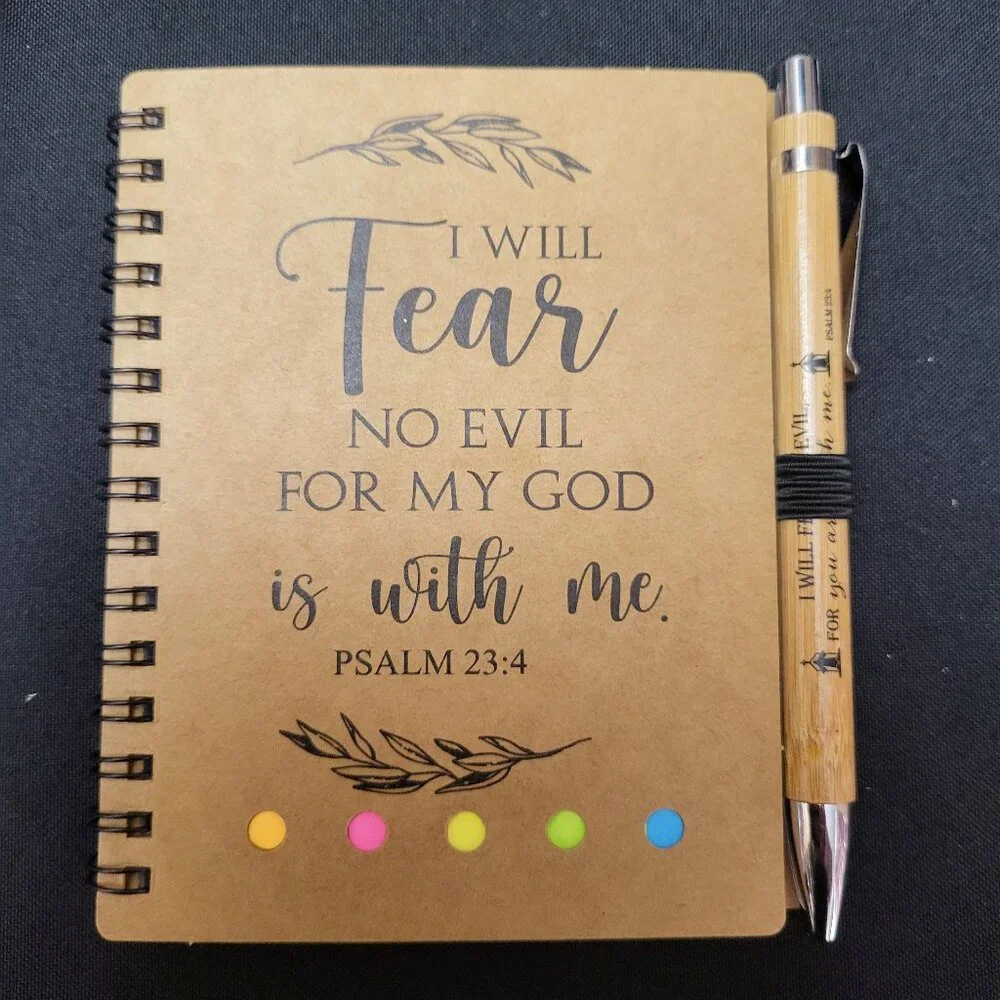 I WILL
Fear
NO EVIL
FOR MY GOD
is with me.
PSALM 23:4
I WILL FE EVIL
FOR you ar h me.
PSALM 23:4